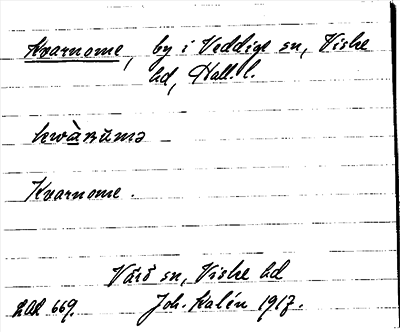 Kvarnome, by i Veddige sn, Viske
hd, Hall. l.
Kvarnome.
Värö sn, Viske hd
LAL 669. Joh. Kalén 1917.